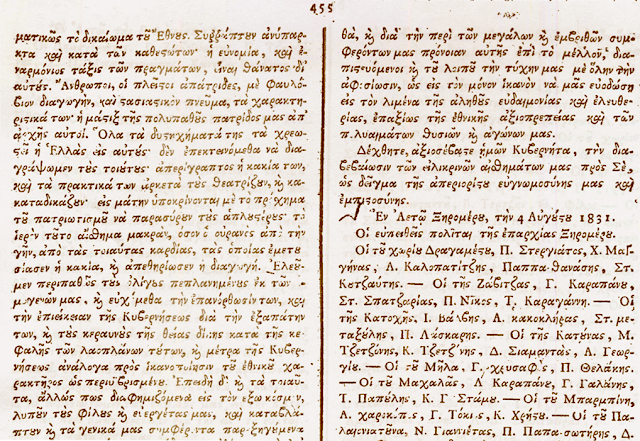 455
ματικῶς τὸ δικαίωμα τοῦ Ἔθνους. Συῤῥάπτουν ἀνύπαρ-
κτα καὶ κατὰ τῶν καθεστώτων· ἡ εὐνομία, καὶ ἐ-
ναρμόνιος τάξις τῶν πραγμάτων, εἶναι θάνατος δι'
αὐτούς. Ἄνθρωποι, οἱ πλεῖστοι ἀπάτριδες, μὲ φαυλό-
βιον διαγωγὴν, καὶ στασιαστικὸν πνεῦμα, τὰ χαρακτη-
ριστικά των· ἡ μάστιξ τῆς πολυπαθοῦς πατρίδος μας ἀπ'
ἀρχῆς αὐτοί. Ὅλα τὰ δυστυχήματά της τὰ χρεω-
στεῖ ἡ Ἑλλὰς εἰς αὐτούς· δὲν ἐπεκτεινόμεθα νὰ δια-
γράψωμεν τοὺς τοιούτους· ἀπερίγραπτος ἡ κακία των,
καὶ τὰ πρακτικά των ἀρκετὰ τοὺς θεατρίζουν, καὶ κα-
καταδικάζουν· εἰς μάτην ὑποκρίνονται μὲ τὸ πρόσχημα
τοῦ πατριωτισμοῦ νὰ παρασύρουν τοὺς ἁπλουστέρους· τὸ
ἱερὸν τοῦτο αἴσθημα μακρὰν, ὅσον ὁ οὐρανὸς ἀπὸ τὴν
γῆν, ἀπὸ τὰς τοιαύτας καρδίας, τὰς ὁποίας ἐμεστού-
σίασεν ἡ κακία, καὶ ἀπεθηρίωσεν ἡ διαγωγή. Ἐλεοῦ-
μεν περιπαθῶς τοὺς ὀλίγους πεπλανημένους ἐκ τῶν
ὁμογενῶν μας, καὶ εὐχόμεθα τὴν ἐπανόρθωσίν των, καὶ
τὴν ἐπιείκειαν τῆς Κυβερνήσεως διὰ τὴν ἐξαπάτην
των, καὶ τοὺς κεραυνοὺς τῆς θείας δίκης κατὰ τῆς κε-
φαλῆς τῶν λαοπλάνων τούτων, καὶ μέτρα τῆς Κυβερ-
νήσεως ἀνάλογα πρὸς ἱκανοποίησιν τοῦ ἐθνικοῦ χα-
ρακτῆρος ὡς περιυβρισμένου. Ἐπειδὴ δ' καὶ τὰ τοιαῦ-
τα, ἄλλως πως διαφημιζόμενα εἰς τὸν ἔξω κόσμον,
λυποῦν τοὺς φίλους καὶ εὐεργέτας μας, καὶ καταβλά-
πτουν καὶ τὰ γενικά μας συμφέροντα παρεξηγούμενα
θά, καὶ διὰ τὴν περὶ τῶν μεγάλων καὶ ἐμβριθῶν συμ-
φερόντων μας πρόνοιαν αὐτῆς ἐπὶ τὸ μέλλον, δια-
πιστευόμενοι καὶ τοῦ λοιποῦ τὴν τύχην μας μὲ ὅλην τὴν
ἀφοσίωσιν, ὡς εἰς τὸν μόνον ἱκανὸν νὰ μᾶς εὐοδώσῃ
εἰς τὸν λιμένα τῆς ἀληθοῦς εὐδαιμονίας καὶ ἐλευθε-
ρίας, ἐπαξίως τῆς ἐθνικῆς ἀξιοπρεπείας καὶ τῶν
πολυαίμων θυσιῶν καὶ ἀγώνων μας.
Δέχθητε, ἀξιοσέβαστε ἡμῶν Κυβερνῆτα, τὴν δια-
βεβαίωσιν τῶν εἰλικρινῶν αἰσθημάτων μας πρὸς Σὲ,
ὡς δεῖγμα τῆς ἀπεριορίστου εὐγνωμοσύνης μας καὶ
ἐμπιστοσύνης.
Ἐν Ἀετῷ Ξηρομέρου, τὴν 4 Αὐγούστου 1831.
Οἱ εὐπειθεῖς πολῖται τῆς ἐπαρχίας Ξηρομέρου.
Οἱ τοῦ χωρίου Δραγαμέστου, Π. Στεργιάτος, Χ. Μαγ-
γήνας, Λ. Καλοπατίτζης, Παππα-θανάσης, Στ.
Κετζαύτης. — Οἱ τῆς Ζάβιτζας, Γ. Καραπάνου,
Στ. Σπατζαρίας, Π. Νῖκος, Τ. Καραγάννη. — Οἱ
τῆς Κατοχῆς, Ι. Βάλβης, Α. κακοκλήρας, Στ. με-
ταξούλης, Π. Λάσκαρης. — Οἱ τῆς Κατούνας, Μ.
Τζετζώνης, Κ. Τζετζώνης, Δ. Σιαμαντᾶς, Λ. Γεωρ-
γίου. — Οἱ τοῦ Μήλα, Γ. χρυσαφὸς, Π. Θελάκης.
— Οἱ τοῦ Μαχαλᾶς, Λ. Καραπάνου, Γ. Γαλάνης,
Τ. Παπούλης, Κ. Γ. Στάμου. — Οἱ τοῦ Μπαρμπίνη,
Α. Γ. Τόκας, Κ. Χρήστου. — Οἱ τοῦ Πα-
Ν. Γιαννιέτας, Π. Παπα-σωτήρης, Δ.